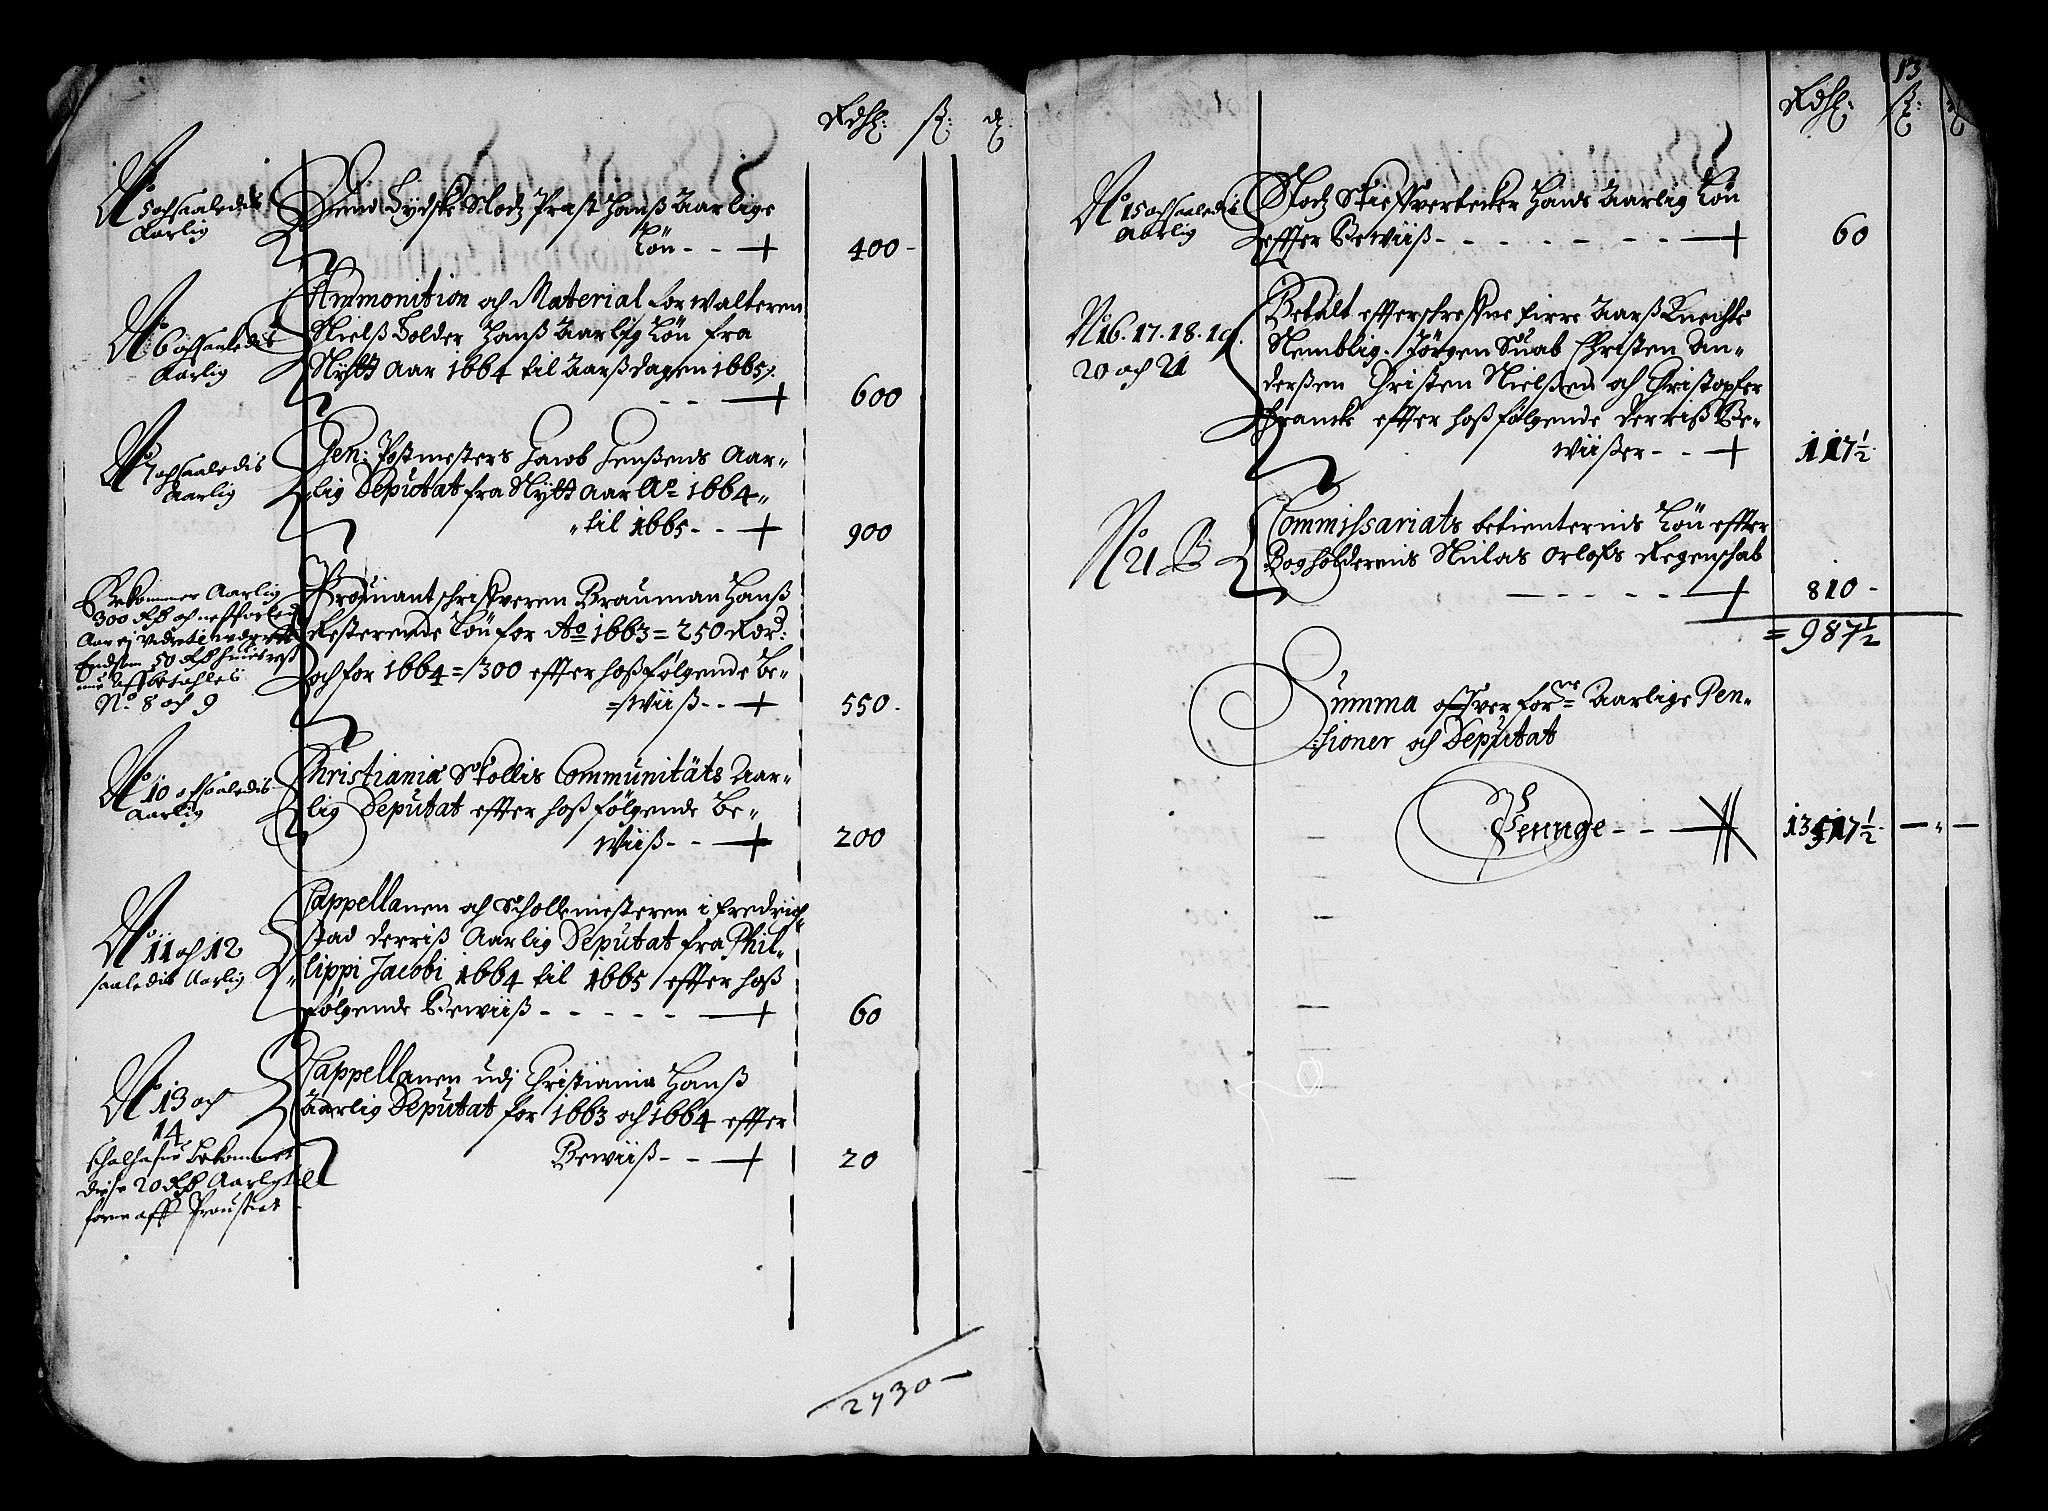 Rdlr: ß: d:
No 5 och saaledis
Aarlig
Dend Tydske Slotz Præst Hanß Aarlige
Løn - - + 400 -
No 6 och saaledis
Aarlig
Ammonition och Material forwalteren
Nielß Holder Hanß Aarlig Løn fra
Nytt Aar 1664 til Aarßdagen 1665
- - + 600
No 7 och saaledis
Aarlig
Gen: Postmesters Jacob Jenßens Aar-
lig Deputat fra Nytt Aar Ao 1664
til 1665 - - + 900
Bekommer Aarlig
300 Rd och
Aar ej videre
50 Rd
No 8 och 9
Proviantschrifveren Brauman Hanß
Resterende Løn for Ao 1663 = 250 Rdr:
och for 1664 = 300 effter hoßfølgende Be-
=wiiß - - + 550 -
No 10 och saaledis
Aarlig
Christiania Skollis Communitäts Aar-
lig Deputat effter hoßfølgende Be-
wiiß - - + 200
No 11 och 12
saaledis Aarlig
Cappellanen och Scholemesteren i Fredrich-
stad derriß Aarlig Deputat fra Phil-
lippi Jacobi 1664 til 1665 effter hoß
følgende Bewiiß - - - - - + 60
No 13 och
14
bekommer
disse 20 Rd Aarlig
aff Proustiet
Cappellanen udj Christiania Hanß
Aarlig Deputat for 1663 och 1664 effter
Bewiiß - - + 20
2730 -
13
Rdlr: ß:
No 15 och saaledis
Aarlig
Slotz Skieffvertecker Hans Aarlig Løn
effter Bewiiß - - - - - - - + 60
No 16. 17. 18. 19.
20 och 21
Betalt effterschrefne firre Aarß Knechte
Nemblig. Jörgen Suab Christen An-
derßen Christen Nielßen och Christopfer
Franck effter hoßfølgende derriß Be-
wiißer - - + 117½
No 21 B
Commissariats betienternis Løn effter
Bogholderens Nilas Orlofs Regenschab
- - - - - + 810 -
= 987½
Summa offver forne Aarlige Pen-
sioner och Deputat
Penge - - 13517½ - - -